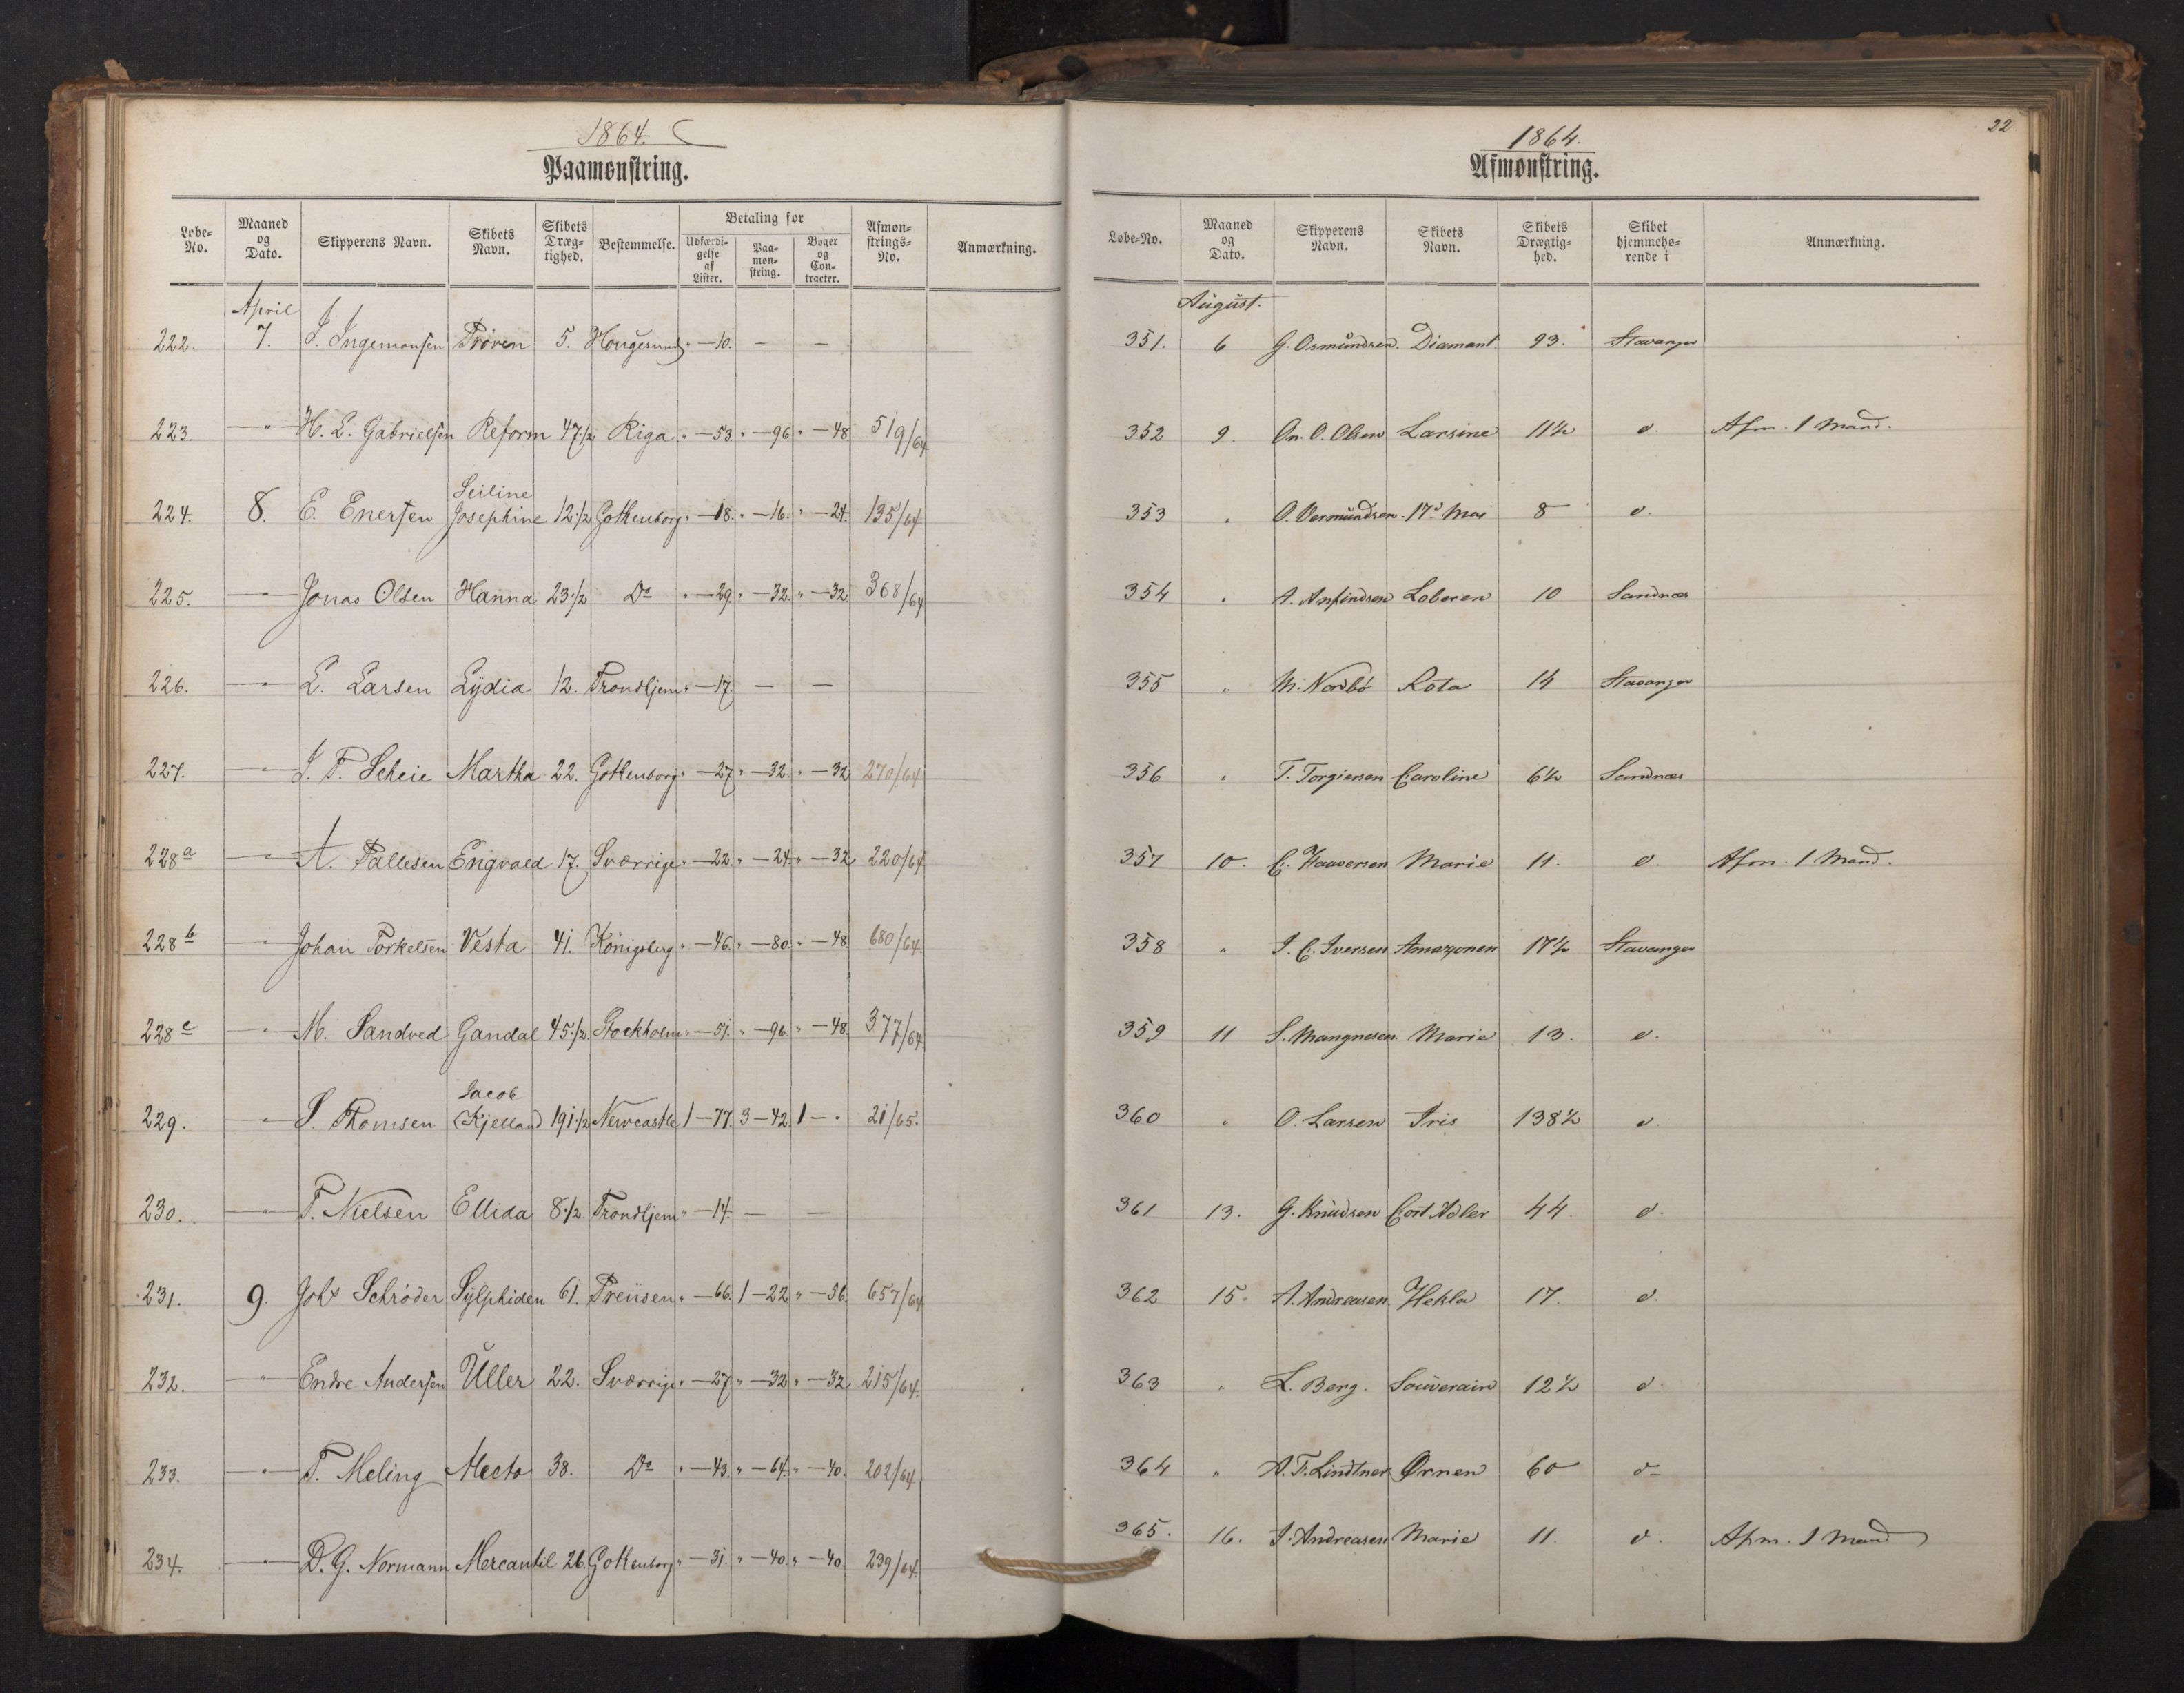 1864.
Paamønstring.
Løbe-No. | Maaned og Dato. | Skipperens Navn. | Skibets Navn. | Skibets Drægtighed. | Bestemmelse. | Betaling for Udfærdigelse af Lister. | Paamønstring. | Bøger og Contracter. | Afmønstrings-No. | Anmærkning.
April
222. 7. J. Ingemonsen Prøven 5. Hougesund " — 10. — —
223. — " — H. L. Gabrielsen Reform 47 1/2 Riga " — 53. " — 96. " — 48 519/64
Seiline
224. 8. E. Enersen Josephine 12 1/2 Gothenborg " — 18. " — 16. " — 24. 135/64
225. — " — Jonas Olsen Hanna 23 1/2 Do " — 29. " — 32. " — 32 368/64
226. — " — L. Larsen Lydia 12. Trondhjem " — 17. — —
227. — " — J. P. Scheie Martha 22. Gothenborg " — 27. " — 32. " — 32 270/64
228 a — " — A. Pallesen Engvald 17. Sværrige " — 22. " — 24. " — 32 220/64
228 b — " — Johan Torkelsen Vesta 41. Königsberg " — 46. " — 80. " — 48 680/64
228 c — " — M. Sandved Gandal 45 1/2 Stockholm " — 51. " — 96. " — 48. 377/64
Jacob
229. — " — S. Thomsen Kjelland 191 1/2 Newcastle 1 — 77. 3 — 42. 1 — " 21/65.
230. — " — T. Nielsen Ellida 8 1/2 Trondhjem " — 14. — —
231. 9. Johs Schrøder Sylphiden 61. Preusen " — 66. 1 — 22 " — 56. 657/64
232. — " — Endre Andersen Uller 22. Sværrige " — 27. " — 32 " — 32 215/64.
233. — " — T. Meling Alecto 38. Do " — 43. " — 64. " — 40. 202/64
234. — " — D. G. Normann Mercantil 26. Gothenborg " — 31. " — 40. " — 40. 239/64
22
1864.
Afmønstring.
Løbe-No. | Maaned og Dato. | Skipperens Navn. | Skibets Navn. | Skibets Drægtighed. | Skibet hjemmehørende i | Anmærkning.
August.
351. 6 G. Osmundsen Diamant 93. Stavanger
352 9. On. O. Olsen Larsine 11 1/2 d. Afm. 1 Mand.
353 " O. Vermundsen 17d Mai 8 d.
354 " A. Anfindsen Loberen 10 Sandnæs
355 " M. Nordbö Rota 14 Stavanger
356 " T. Torgiersen Caroline 6 1/2 Sandnæs
357 10. C. Haaversen Marie 11. d. Afm. 1 Mand.
358 " J. C. Iversen Amazonen 17 1/2 Stavanger
359 11 S. Mangnesen Marie 13. d.
360 " O. Larsen Iris 138 1/2 d.
361 13. G. Knudsen Cort Adler 44. d.
362 15. A. Andreasen Hekla 17. d.
363 " L. Berg. Souverain 12 1/2 d.
364 " A. F. Lindtner Ørnen 60 d.
365. 16. J. Andreasen Marie 11. d. Afm. 1 Mand